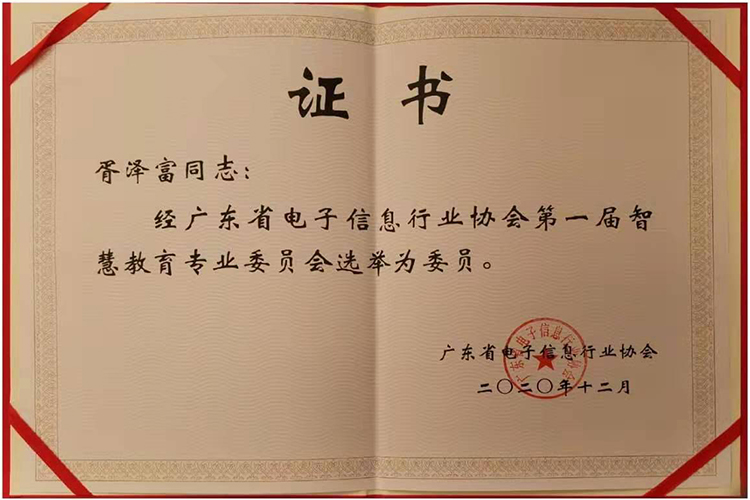 证书
胥泽富同志：
经广东省电子信息行业协会第一届智
慧教育专业委员会选举为委员。
广东省电子信息行业协会
二〇二〇年十二月
广东省电子信息行业协会